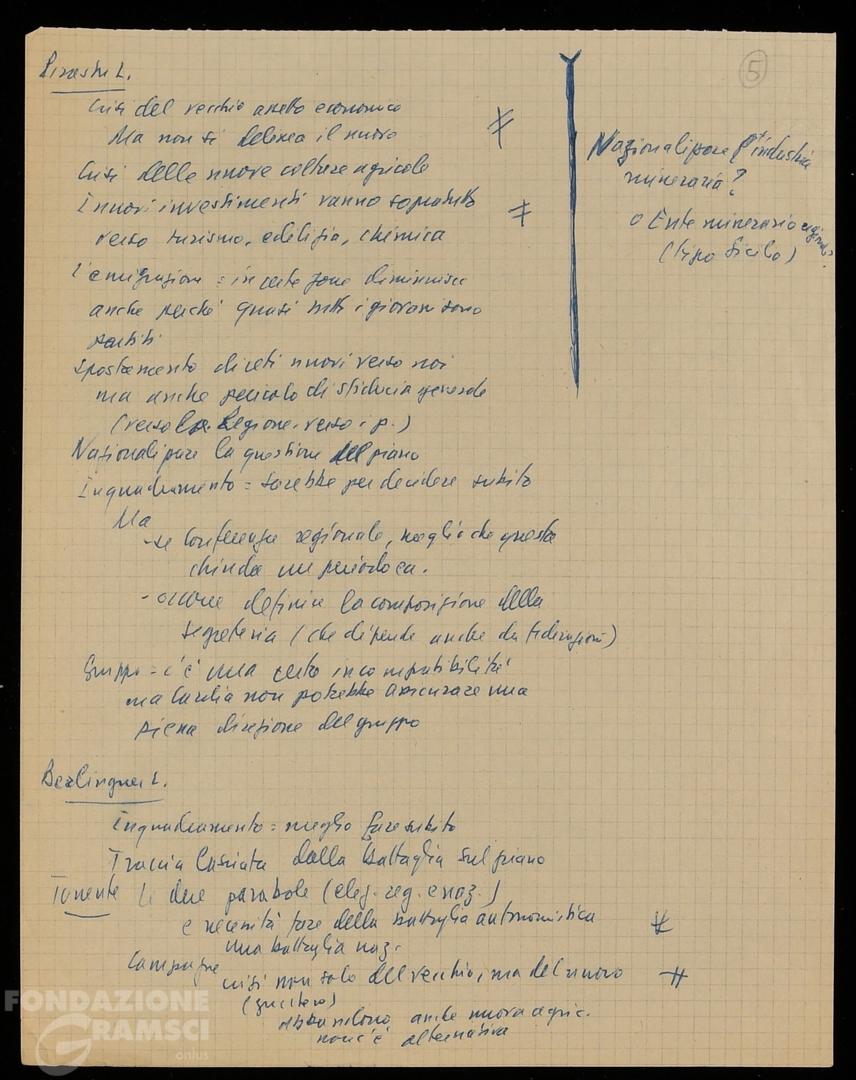 5
Pirastu L.
Crisi del vecchio assetto economico
Ma non si delinea il nuovo
Crisi delle nuove colture agricole
I nuovi investimenti vanno soprattutto
verso turismo, edilizia, chimica
L'emigrazione = in certe zone diminuisce
anche perché quasi tutti i giovani sono
partiti
Spostamento di ceti nuovi verso noi
ma anche pericolo di sfiducia generale
(verso la Regione, verso i p.)
Nazionalizzare la questione del piano
Inquadramento = sarebbe per decidere subito
Ma
- se Conferenza regionale, meglio che questa
chiuda un periodo
- occorre definire la composizione della
segreteria (che dipende anche da federazioni)
Gruppo = c'è una certa incompatibilità
ma Cardia non potrebbe assicurare una
piena direzione del gruppo
Nazionalizzare l'industria
mineraria?
o Ente minerario regionale
(tipo Sicilia)
Berlinguer L.
Inquadramento = meglio fare subito
Traccia lasciata dalla battaglia sul piano
Tenente le due parabole (elez. reg. e naz.)
e necessità fare della battaglia autonomistica
una battaglia naz.
Campagne
crisi non solo del vecchio, ma del nuovo
abbandono anche nuova agric.
non c'è alternativa
FONDAZIONE
GRAMSCI
onlus